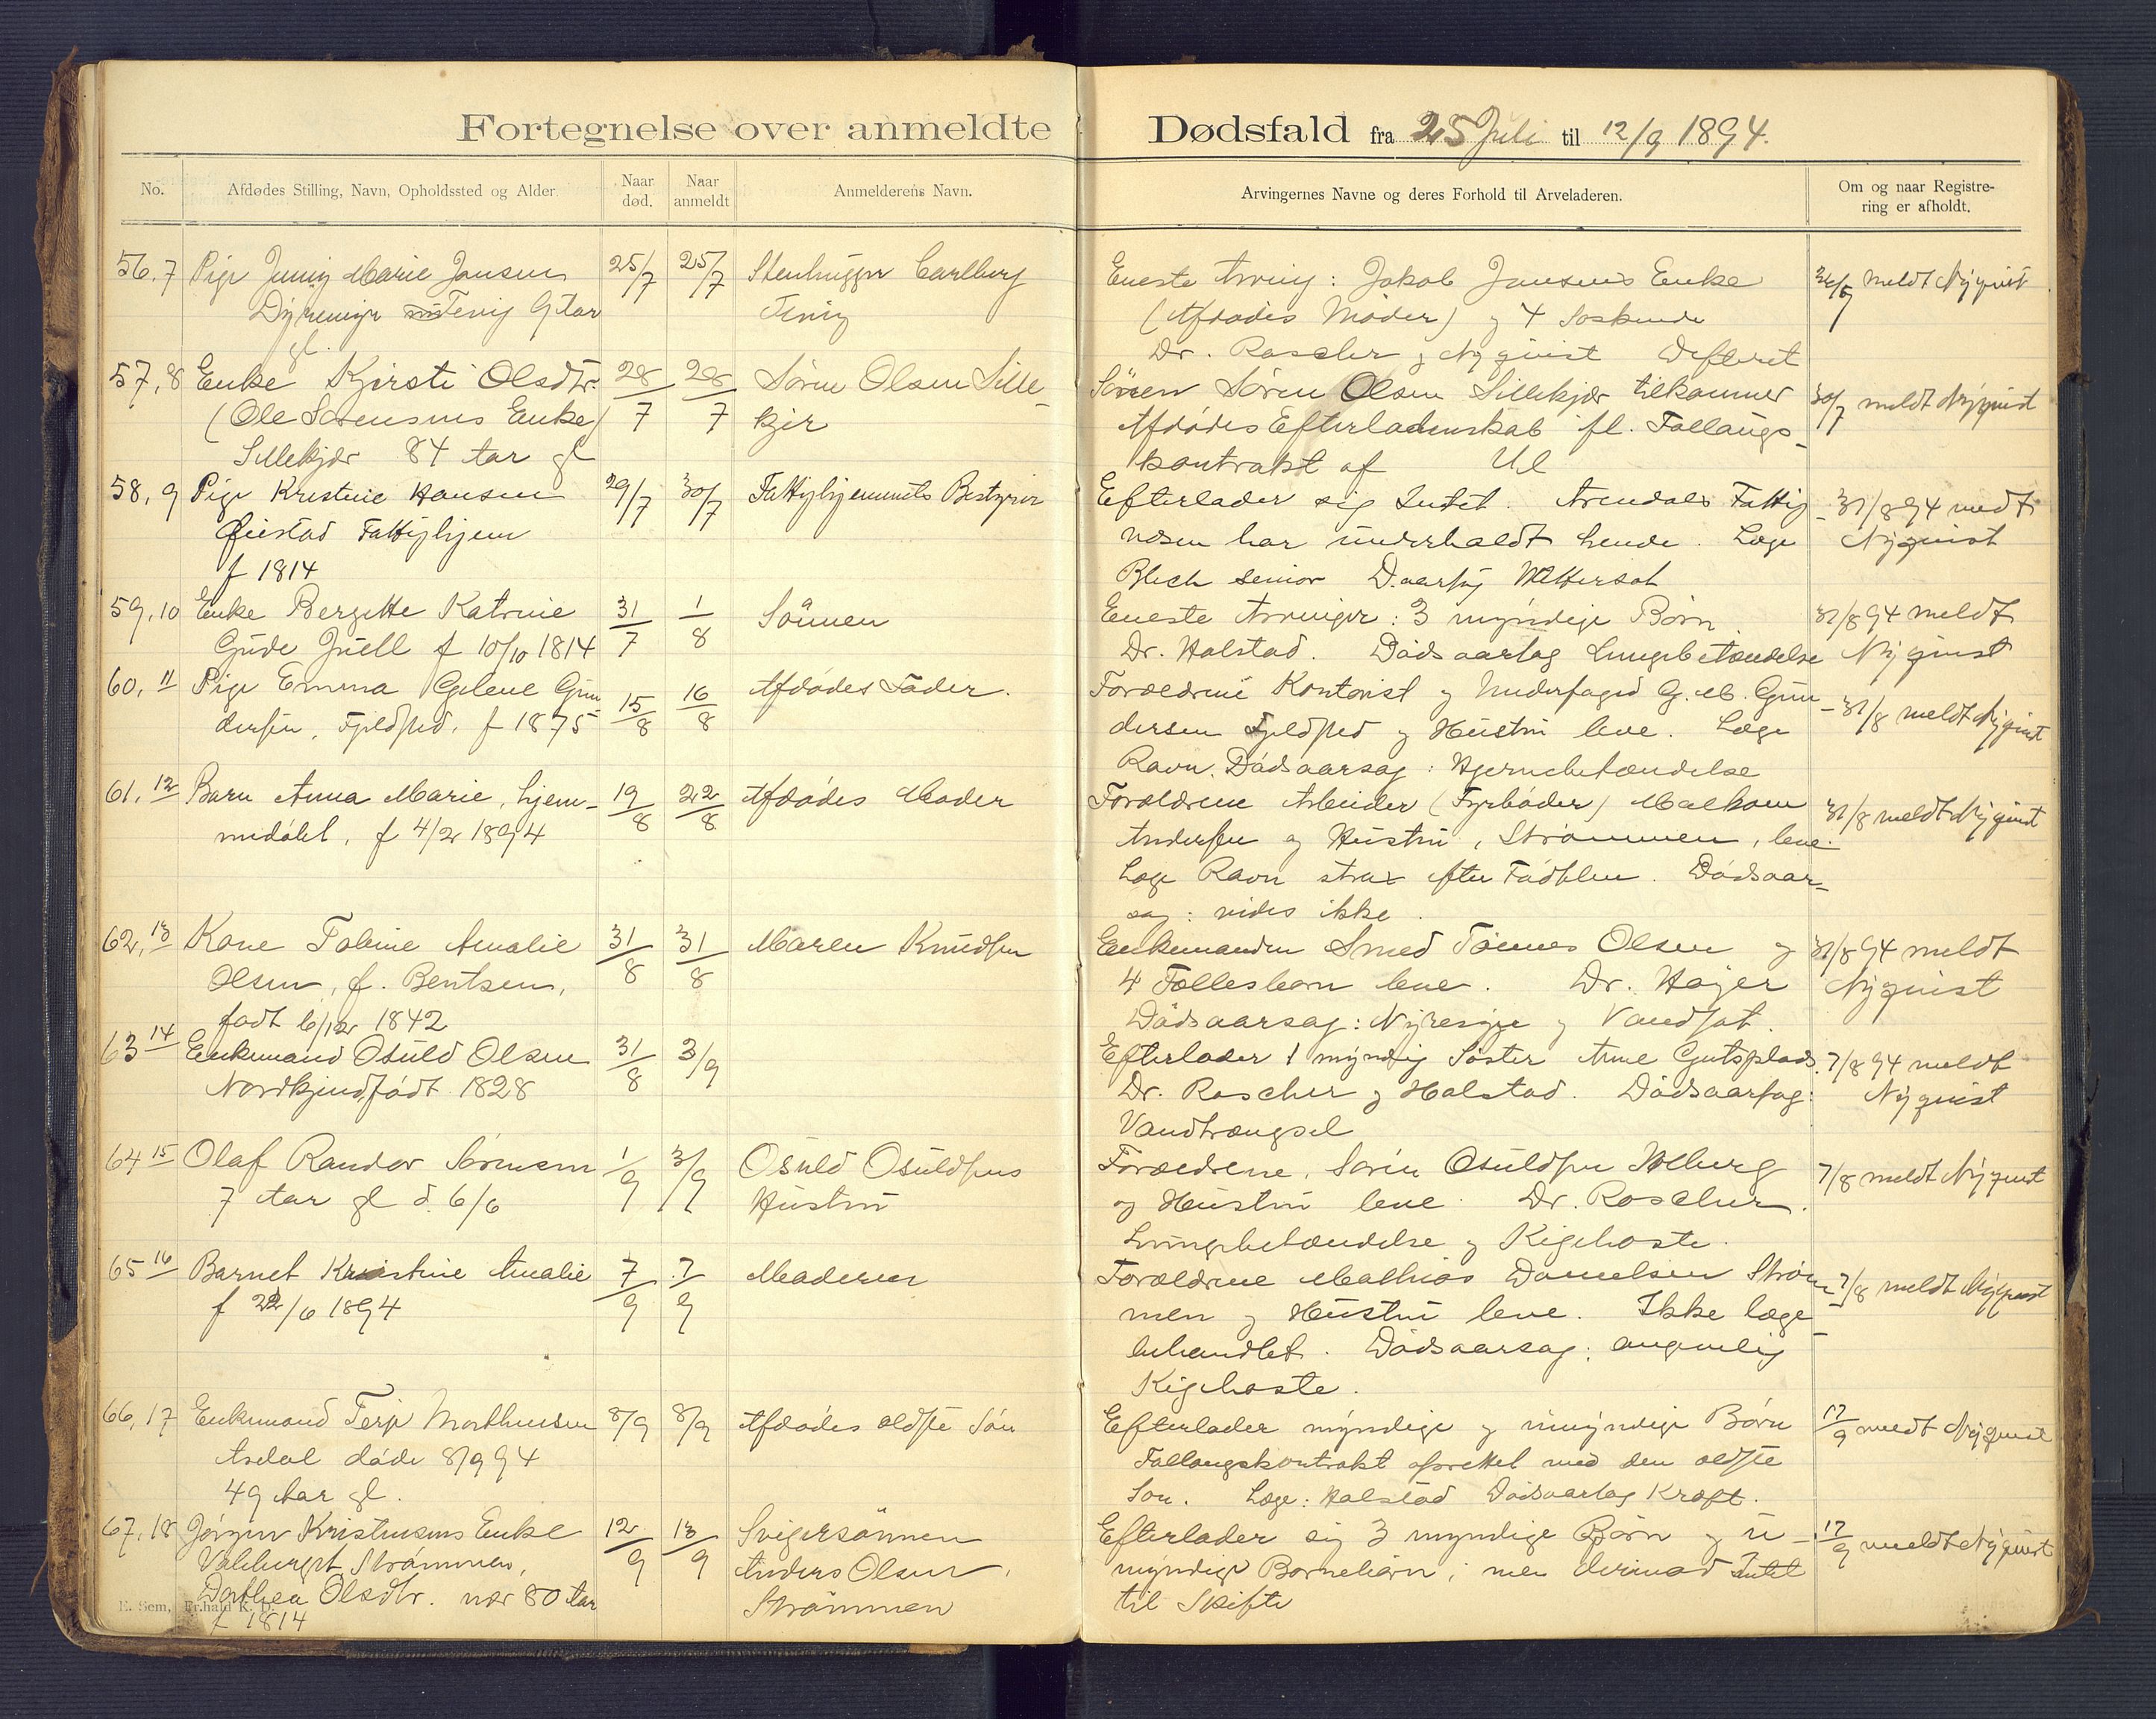 Fortegnelse over anmeldte Dødsfald fra 25 Juli til 12/9 1894.
No.
Afdødes Stilling, Navn, Opholdssted og Alder.
Naar død.
Naar anmeldt
Anmelderens Navn.
Arvingernes Navne og deres Forhold til Arveladeren.
Om og naar Registre-
ring er afholdt.
56.7 Pige Jenny Marie Jansen 25/7 25/7 Stenhugger Carlberg
Dyremyr Fevig 9 Aar Fevig
gl.
Eneste Arving: Jakob Jansens Enke meldt Nyquist
(Afdødes Moder) og 4 Søskende
Dr. Roscher og Nyquist Difterit
57,8 Enke Kjersti Olsdtr. 28/7 28/7 Søren Olsen Sille-
(Ole Sørensens Enke) kjær
Sillekjær 84 Aar gl
Sönnen Søren Olsen Sillekjær tilkommer 30/7 meldt Nyquist
Afdödes Efterladenskab fl. Follaugs-
kontrakt af
58,9 Pige Kristine Hansen 29/7 30/7 Fattighjemmets Bestyrer
Øiestad Fattighjem
f 1814
Efterlader sig Intet. Arendals Fattig- 31/8 94 meldt
væsen har underholdt hende. Læge Nyquist
Blich senior
59,10 Enke Bergitte Katrine 31/7 1/8 Sönnen
Gude Juell f 10/10 1814
Eneste Arvinger: 3 myndige Børn. 31/8 94 meldt
Dr. Halstad. Dödsaarsag Lungebetændelse Nyquist
60,11 Pige Emma Gelene Gun- 15/8 16/8 Afdødes Fader.
dersen, Fjeldsed. f 1875
Forældrene Kontorist og Underfoged G. M. Gun- 31/8 meldt Nyquist
dersen Fjeldsed og Hustru leve. Læge
Ravn. Dödsaarsag: Hjernebetændelse
61,12 Barn Anna Marie, hjem- 19/8 22/8 Afdødes Moder
medöbt, f 4/2 1894
Forældrene Arbeider (Fyrböder) Malkom 31/8 meldt Nyquist
Andersen og Hustru, Strømmen, leve.
Læge Ravn strax efter Födslen. Dödsaar-
sag: vides ikke.
62,13 Kone Tobine Amalie 31/8 31/8 Maren Knudsen
Olsen, f. Bentsen,
født 6/12 1842
Enkemanden Smed Tønnes Olsen og 31/8 94 meldt
4 Fællesbørn leve. Dr. Høyer Nyquist
Dödsaarsag: Nyresyge og Vandsot.
63 14 Enkemand Osuld Olsen 31/8 3/9
Nordkjend, födt 1828
Efterlader 1 myndig Söster Anne Gutsplads. 7/8 94 meldt
Dr. Roscher og Halstad. Dödsaarsag: Nyquist
Vandtrængsel
64 15 Olaf Randor Sørensen 1/9 3/9 Osuld Osuldsens
7 Aar gl d. 6/6 Hustru
Forældrene, Søren Osuldsen 7/8 meldt Nyquist
og Hustru leve. Dr. Roscher.
Lungebetændelse og Kighoste.
65 16 Barnet Kristine Amalie 7/9 7/9 Moderen
f 22/6 1894
Forældrene Mathias Danielsen Strøm- 7/8 meldt Nyquist
men og Hustru leve. Ikke læge-
behandlet. Dödsaarsag: angivelig
Kighoste.
66,17 Enkemand Terje Morthensen 8/9 8/9 Afdødes ældste Søn
Asdal döde 8/9 94
49 Aar gl.
Efterlader myndige og umyndige Börn 17/9 meldt Nyquist
Follaugskontrakt oprettet med den ældste
Søn. Læge: Halstad Dödsaarsag Kræft.
67,18 Jörgen Kristensens Enke 12/9 13/9 Svigersönnen
Strömmen, Anders Olsen,
Dorthea Olsdtr. nær 80 Aar Strömmen
f 1814
Efterlader sig 3 myndige Børn og u- 17/9 meldt Nyquist
myndige Børnebørn; men derimod Intet
til Skifte
E. Sem, Fr.hald K. D.